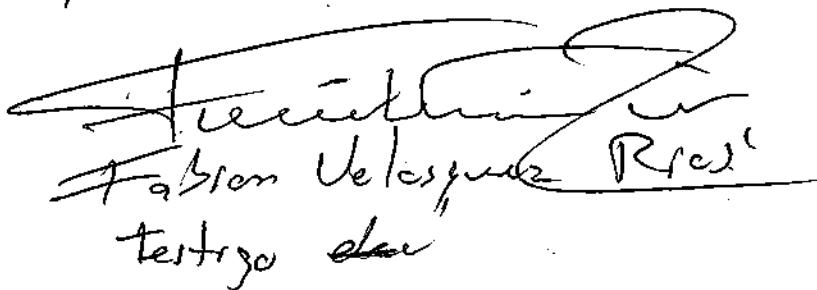 Fabian Velasquez Rios
testigo